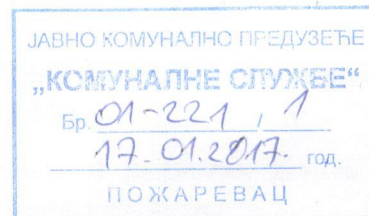 ЈАВНО КОМУНАЛНО ПРЕДУЗЕЋЕ
„КОМУНАЛНЕ СЛУЖБЕ“
Бр. 01-221 / 1
17.01.2017. год.
ПОЖАРЕВАЦ